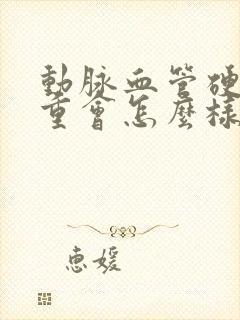 動脈血管硬
重會怎麼樣
惠媛